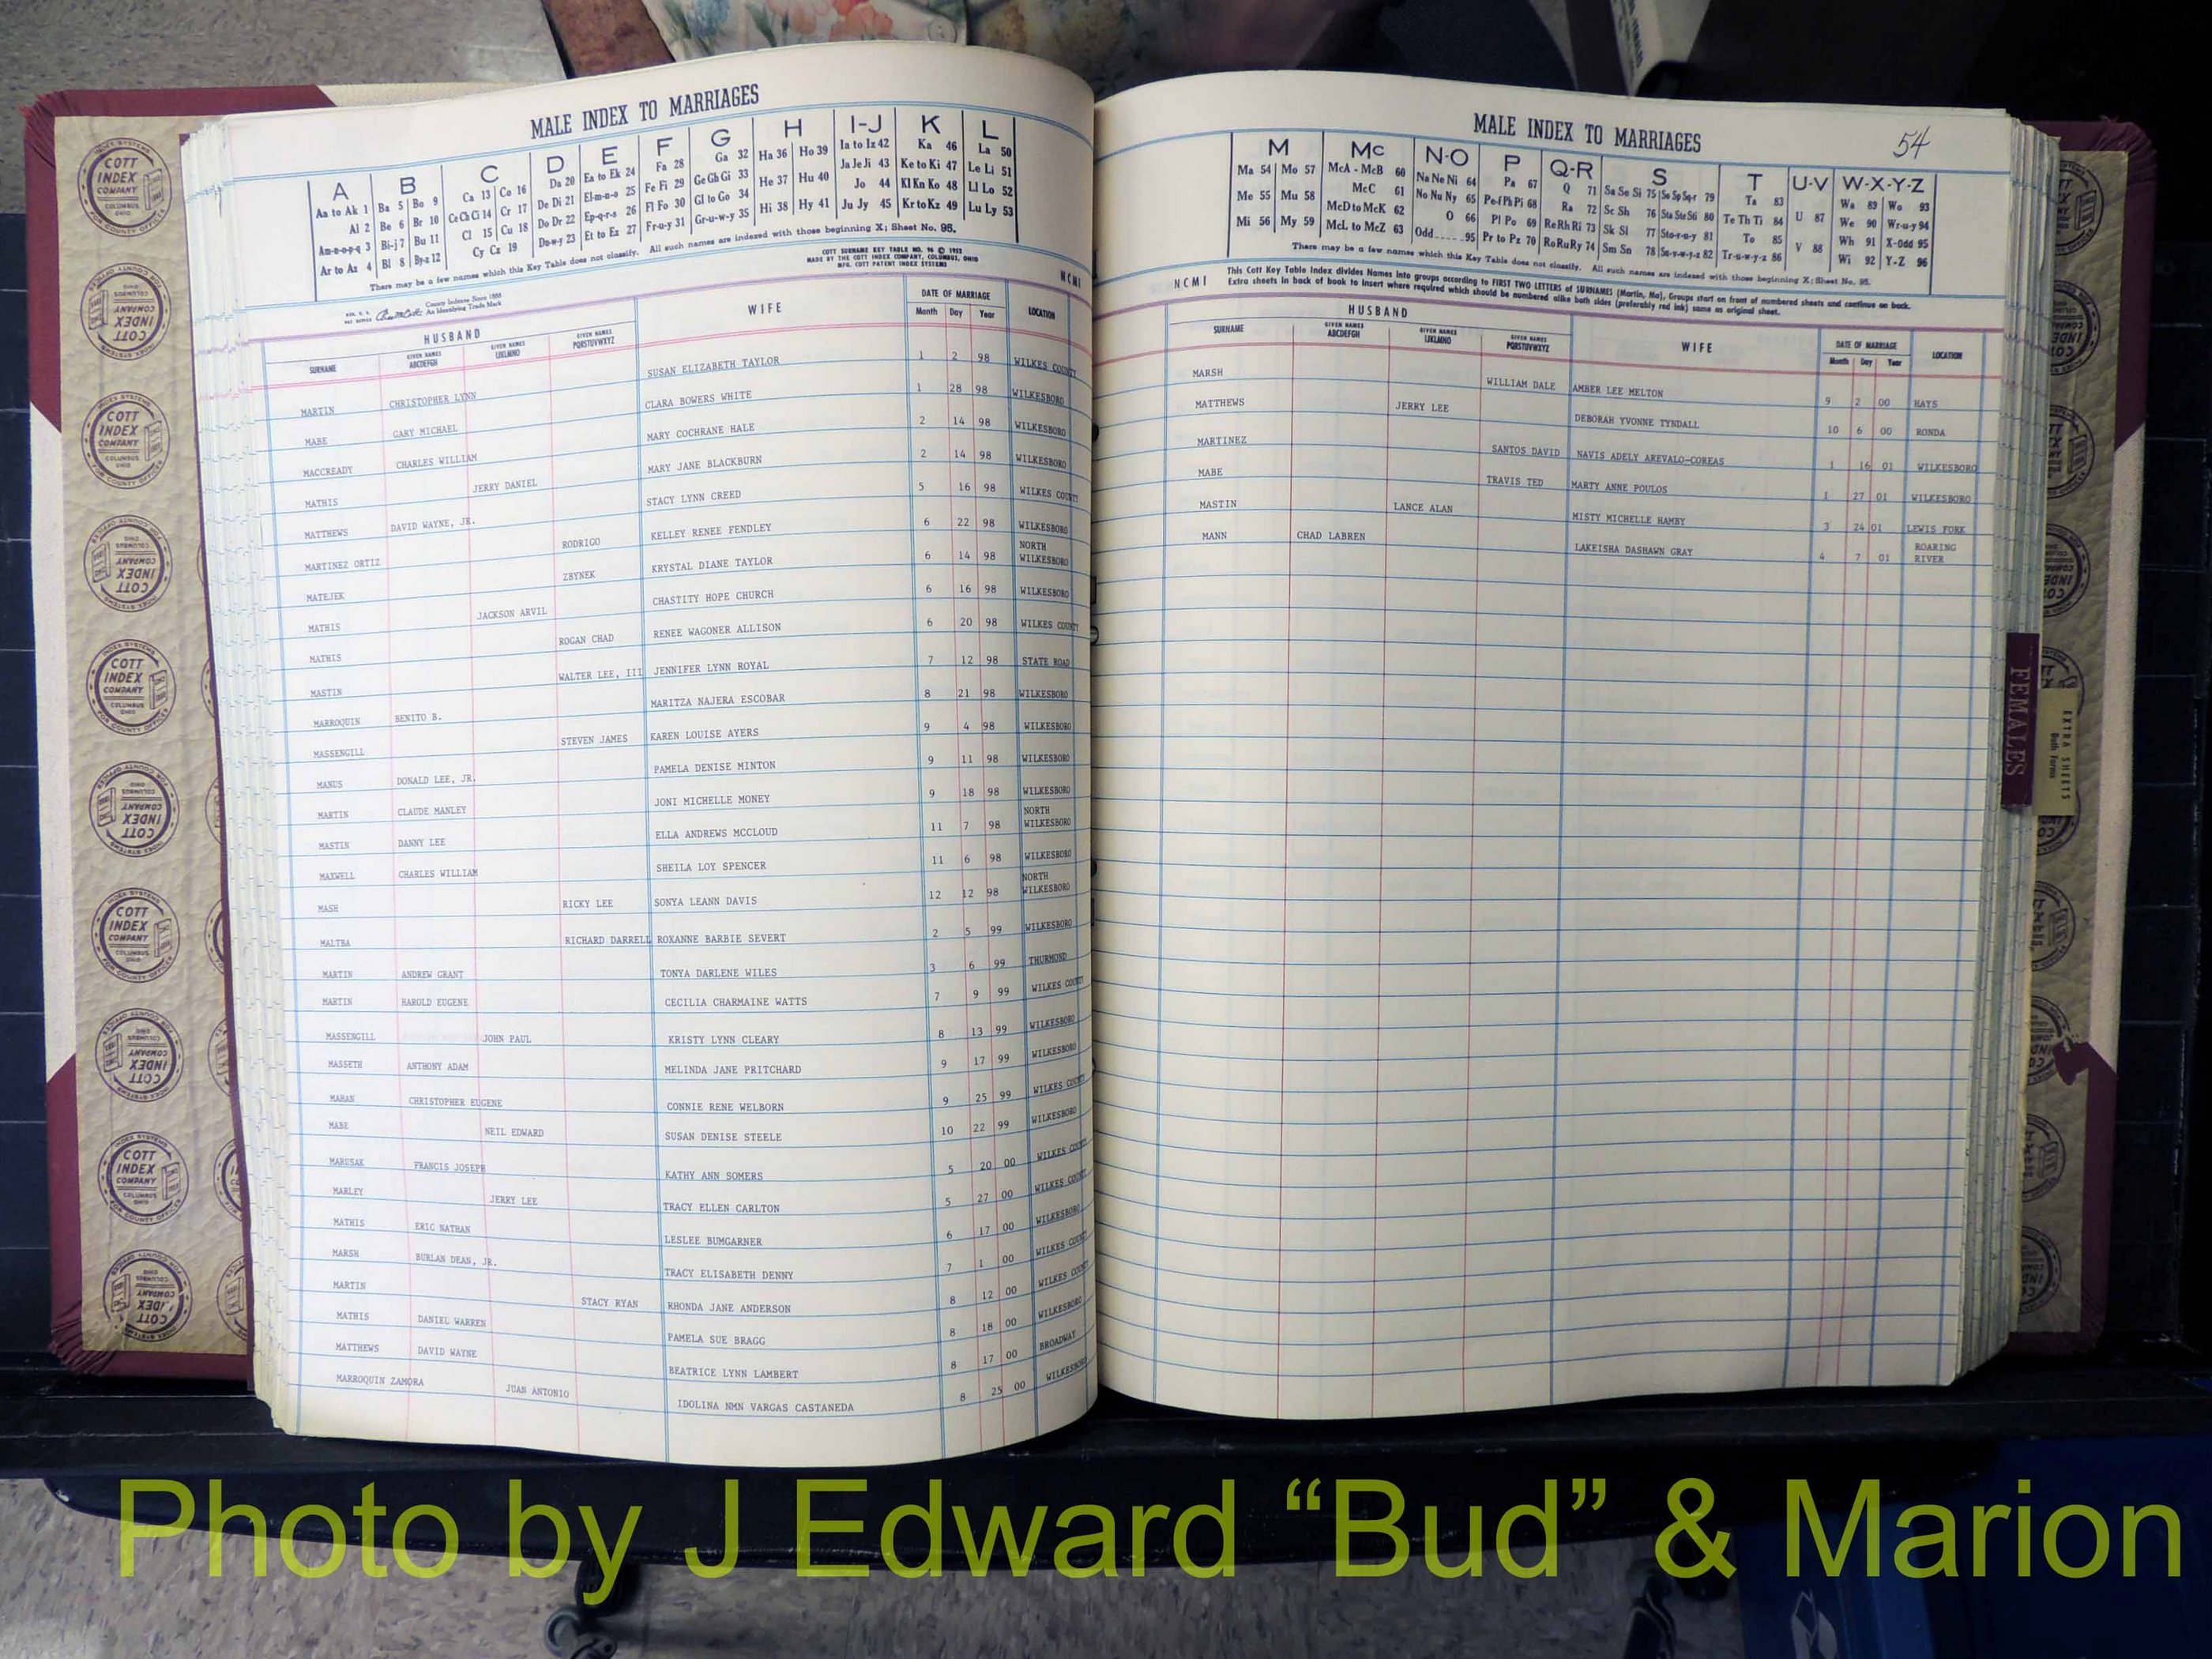 MALE INDEX TO MARRIAGES
A B C D E F G H I-J K L
Aa to Ak 1 Ba 5 Bo 9 Ca 13 Co 16 Da 20 Ea to Ek 24 Fa 28 Ga 32 Ha 36 Ho 39 Ia to Iz 42 Ka 46 La 50
Al 2 Be 6 Br 10 Ce Ch Ci 14 Cr 17 De Di 21 El-m-n-o 25 Fe Fi 29 Ge Gh Gi 33 He 37 Hu 40 Ja Je Ji 43 Ke to Ki 47 Le Li 51
Am-n-o-p-q 3 Bi-j 7 Bu 11 Cl 15 Cu 18 Do Dr 22 Ep-q-r-s 26 Fl Fo 30 Gl to Go 34 Hi 38 Hy 41 Jo 44 Kl Kn Ko 48 Ll Lo 52
Ar to Az 4 Bl 8 By-z 12 Cy Cz 19 Du-w-y 23 Et to Ez 27 Fr-u-y 31 Gr-u-w-y 35 Ju Jy 45 Kr to Kz 49 Lu Ly 53
There may be a few names which this Key Table does not classify. All such names are indexed with those beginning X; Sheet No. 95.
COTT SURNAME KEY TABLE NO. 96 © 1952
MADE BY THE COTT INDEX COMPANY, COLUMBUS, OHIO
MFG. COTT PATENT INDEX SYSTEMS
NCMI
County Indexes Since 1888
An Identifying Trade Mark
HUSBAND WIFE DATE OF MARRIAGE LOCATION
SURNAME GIVEN NAMES ABCDEFGH GIVEN NAMES IJKLMNO GIVEN NAMES PQRSTUVWXYZ Month Day Year
MARTIN CHRISTOPHER LYNN SUSAN ELIZABETH TAYLOR 1 2 98 WILKES COUNTY
MABE GARY MICHAEL CLARA BOWERS WHITE 1 28 98 WILKESBORO
MACCREADY CHARLES WILLIAM MARY COCHRANE HALE 2 14 98 WILKESBORO
MATHIS JERRY DANIEL MARY JANE BLACKBURN 2 14 98 WILKESBORO
MATTHEWS DAVID WAYNE, JR. STACY LYNN CREED 5 16 98 WILKES COUNTY
MARTINEZ ORTIZ RODRIGO KELLEY RENEE FENDLEY 6 22 98 WILKESBORO
MATEJEK ZBYNEK KRYSTAL DIANE TAYLOR 6 14 98 NORTH WILKESBORO
MATHIS JACKSON ARVIL CHASTITY HOPE CHURCH 6 16 98 WILKESBORO
MATHIS ROGAN CHAD RENEE WAGONER ALLISON 6 20 98 WILKES COUNTY
MASTIN WALTER LEE, III JENNIFER LYNN ROYAL 7 12 98 STATE ROAD
MARROQUIN BENITO B. MARITZA NAJERA ESCOBAR 8 21 98 WILKESBORO
MASSENGILL STEVEN JAMES KAREN LOUISE AYERS 9 4 98 WILKESBORO
MANUS DONALD LEE, JR. PAMELA DENISE MINTON 9 11 98 WILKESBORO
MARTIN CLAUDE MANLEY JONI MICHELLE MONEY 9 18 98 WILKESBORO
MASTIN DANNY LEE ELLA ANDREWS MCCLOUD 11 7 98 NORTH WILKESBORO
MAXWELL CHARLES WILLIAM SHEILA LOY SPENCER 11 6 98 WILKESBORO
MASH RICKY LEE SONYA LEANN DAVIS 12 12 98 NORTH WILKESBORO
MALTBA RICHARD DARRELL ROXANNE BARBIE SEVERT 2 5 99 WILKESBORO
MARTIN ANDREW GRANT TONYA DARLENE WILES 3 6 99 THURMOND
MARTIN HAROLD EUGENE CECILIA CHARMAINE WATTS 7 9 99 WILKES COUNTY
MASSENGILL JOHN PAUL KRISTY LYNN CLEARY 8 13 99 WILKESBORO
MASSETH ANTHONY ADAM MELINDA JANE PRITCHARD 9 17 99 WILKESBORO
MAHAN CHRISTOPHER EUGENE CONNIE RENE WELBORN 9 25 99 WILKES COUNTY
MABE NEIL EDWARD SUSAN DENISE STEELE 10 22 99 WILKESBORO
MARUSAK FRANCIS JOSEPH KATHY ANN SOMERS 5 20 00 WILKES COUNTY
MARLEY JERRY LEE TRACY ELLEN CARLTON 5 27 00 WILKES COUNTY
MATHIS ERIC NATHAN LESLEE BUMGARNER 6 17 00 WILKESBORO
MARSH BURLAN DEAN, JR. TRACY ELISABETH DENNY 7 1 00 WILKES COUNTY
MARTIN STACY RYAN RHONDA JANE ANDERSON 8 12 00 WILKES COUNTY
MATHIS DANIEL WARREN PAMELA SUE BRAGG 8 18 00 WILKESBORO
MATTHEWS DAVID WAYNE BEATRICE LYNN LAMBERT 8 17 00 BROADWAY
MARROQUIN ZAMORA JUAN ANTONIO IDOLINA NMN VARGAS CASTANEDA 8 25 00 WILKESBORO
MALE INDEX TO MARRIAGES
54
M Mc N-O P Q-R S T U-V W-X-Y-Z
Ma 54 Mo 57 McA - McB 60 Na Ne Ni 64 Pa 67 Q 71 Sa Se Si 75 Sp Sq-r 79 Ta 83 U 87 Wa 89 Wo 93
Me 55 Mu 58 McC 61 No Nu Ny 65 Pe-f Ph Pi 68 Ra 72 Sc Sh 76 Sta Ste Sti 80 Te Th Ti 84 V 88 We 90 Wr-u-y 94
Mi 56 My 59 McD to McK 62 O 66 Pl Po 69 Re Rh Ri 73 Sk Sl 77 Sto-r-u-y 81 To 85 Wh 91 X-Odd 95
McL to McZ 63 Odd 95 Pr to Pz 70 Ro Ru Ry 74 Sm Sn 78 Su-v-w-y-z 82 Tr-u-w-y-z 86 Wi 92 Y-Z 96
There may be a few names which this Key Table does not classify. All such names are indexed with those beginning X; Sheet No. 95.
NCMI
This Cott Key Table Index divides Names into groups according to FIRST TWO LETTERS of SURNAMES (Martin, Ma), Groups start on front of numbered sheets and continue on back.
Extra sheets in back of book to insert where required which should be numbered alike both sides (preferably red ink) same as original sheet.
HUSBAND WIFE DATE OF MARRIAGE LOCATION
SURNAME GIVEN NAMES ABCDEFGH GIVEN NAMES IJKLMNO GIVEN NAMES PQRSTUVWXYZ Month Day Year
MARSH WILLIAM DALE AMBER LEE MELTON 9 2 00 HAYS
MATTHEWS JERRY LEE DEBORAH YVONNE TYNDALL 10 6 00 RONDA
MARTINEZ SANTOS DAVID NAVIS ADELY AREVALO-COREAS 1 16 01 WILKESBORO
MABE TRAVIS TED MARTY ANNE POULOS 1 27 01 WILKESBORO
MASTIN LANCE ALAN MISTY MICHELLE HAMBY 3 24 01 LEWIS FORK
MANN CHAD LABREN LAKEISHA DASHAWN GRAY 4 7 01 ROARING RIVER
FEMALES
EXTRA SHEETS
Both Forms
INDEX SYSTEMS
COTT
INDEX
COMPANY
COLUMBUS
OHIO
FOR COUNTY OFFICES
Photo by J Edward “Bud” & Marion